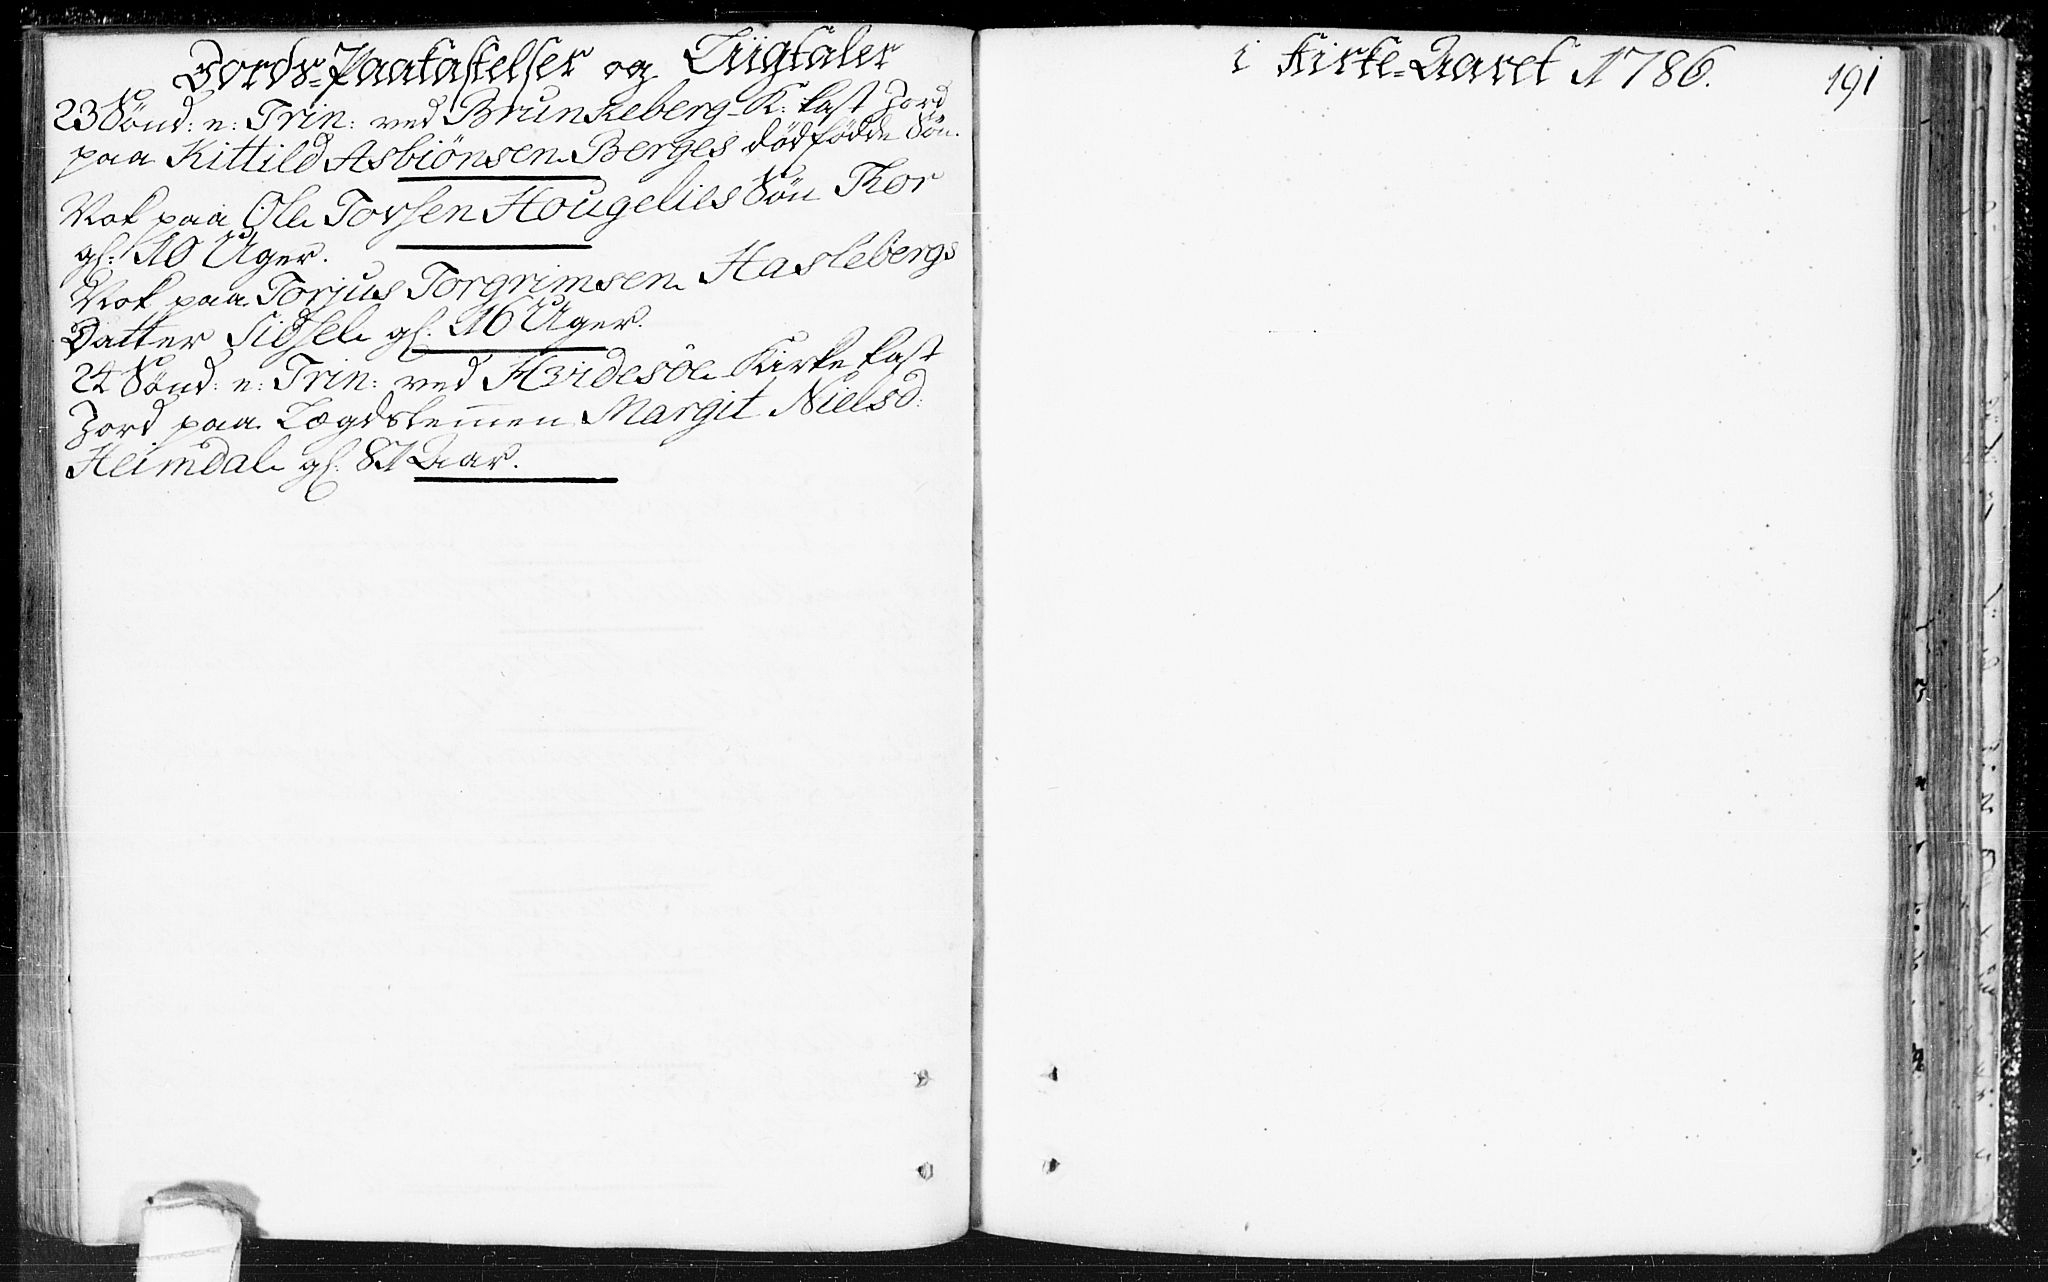 Jords-Paakastelser og Liigtaler
23 Sønd: e: Trin: ved Brunkeberg-K: kast Jord
paa Kittild Asbiönsen Berges dödfödde Sön.
Nok paa Ole Torsen Hougelies Sön Thor
gl: 10 Uger.
Nok paa Torjus Torgrimsen Haslebergs
Datter Sidsel gl: 16 Uger.
24 Sönd: e: Trin: ved Hvidesöe Kirke kast
Jord paa Lægdslemmen Margit Nielsd:
Heimdal gl: 87 Aar.
i Kirke-Aaret 1786.
191